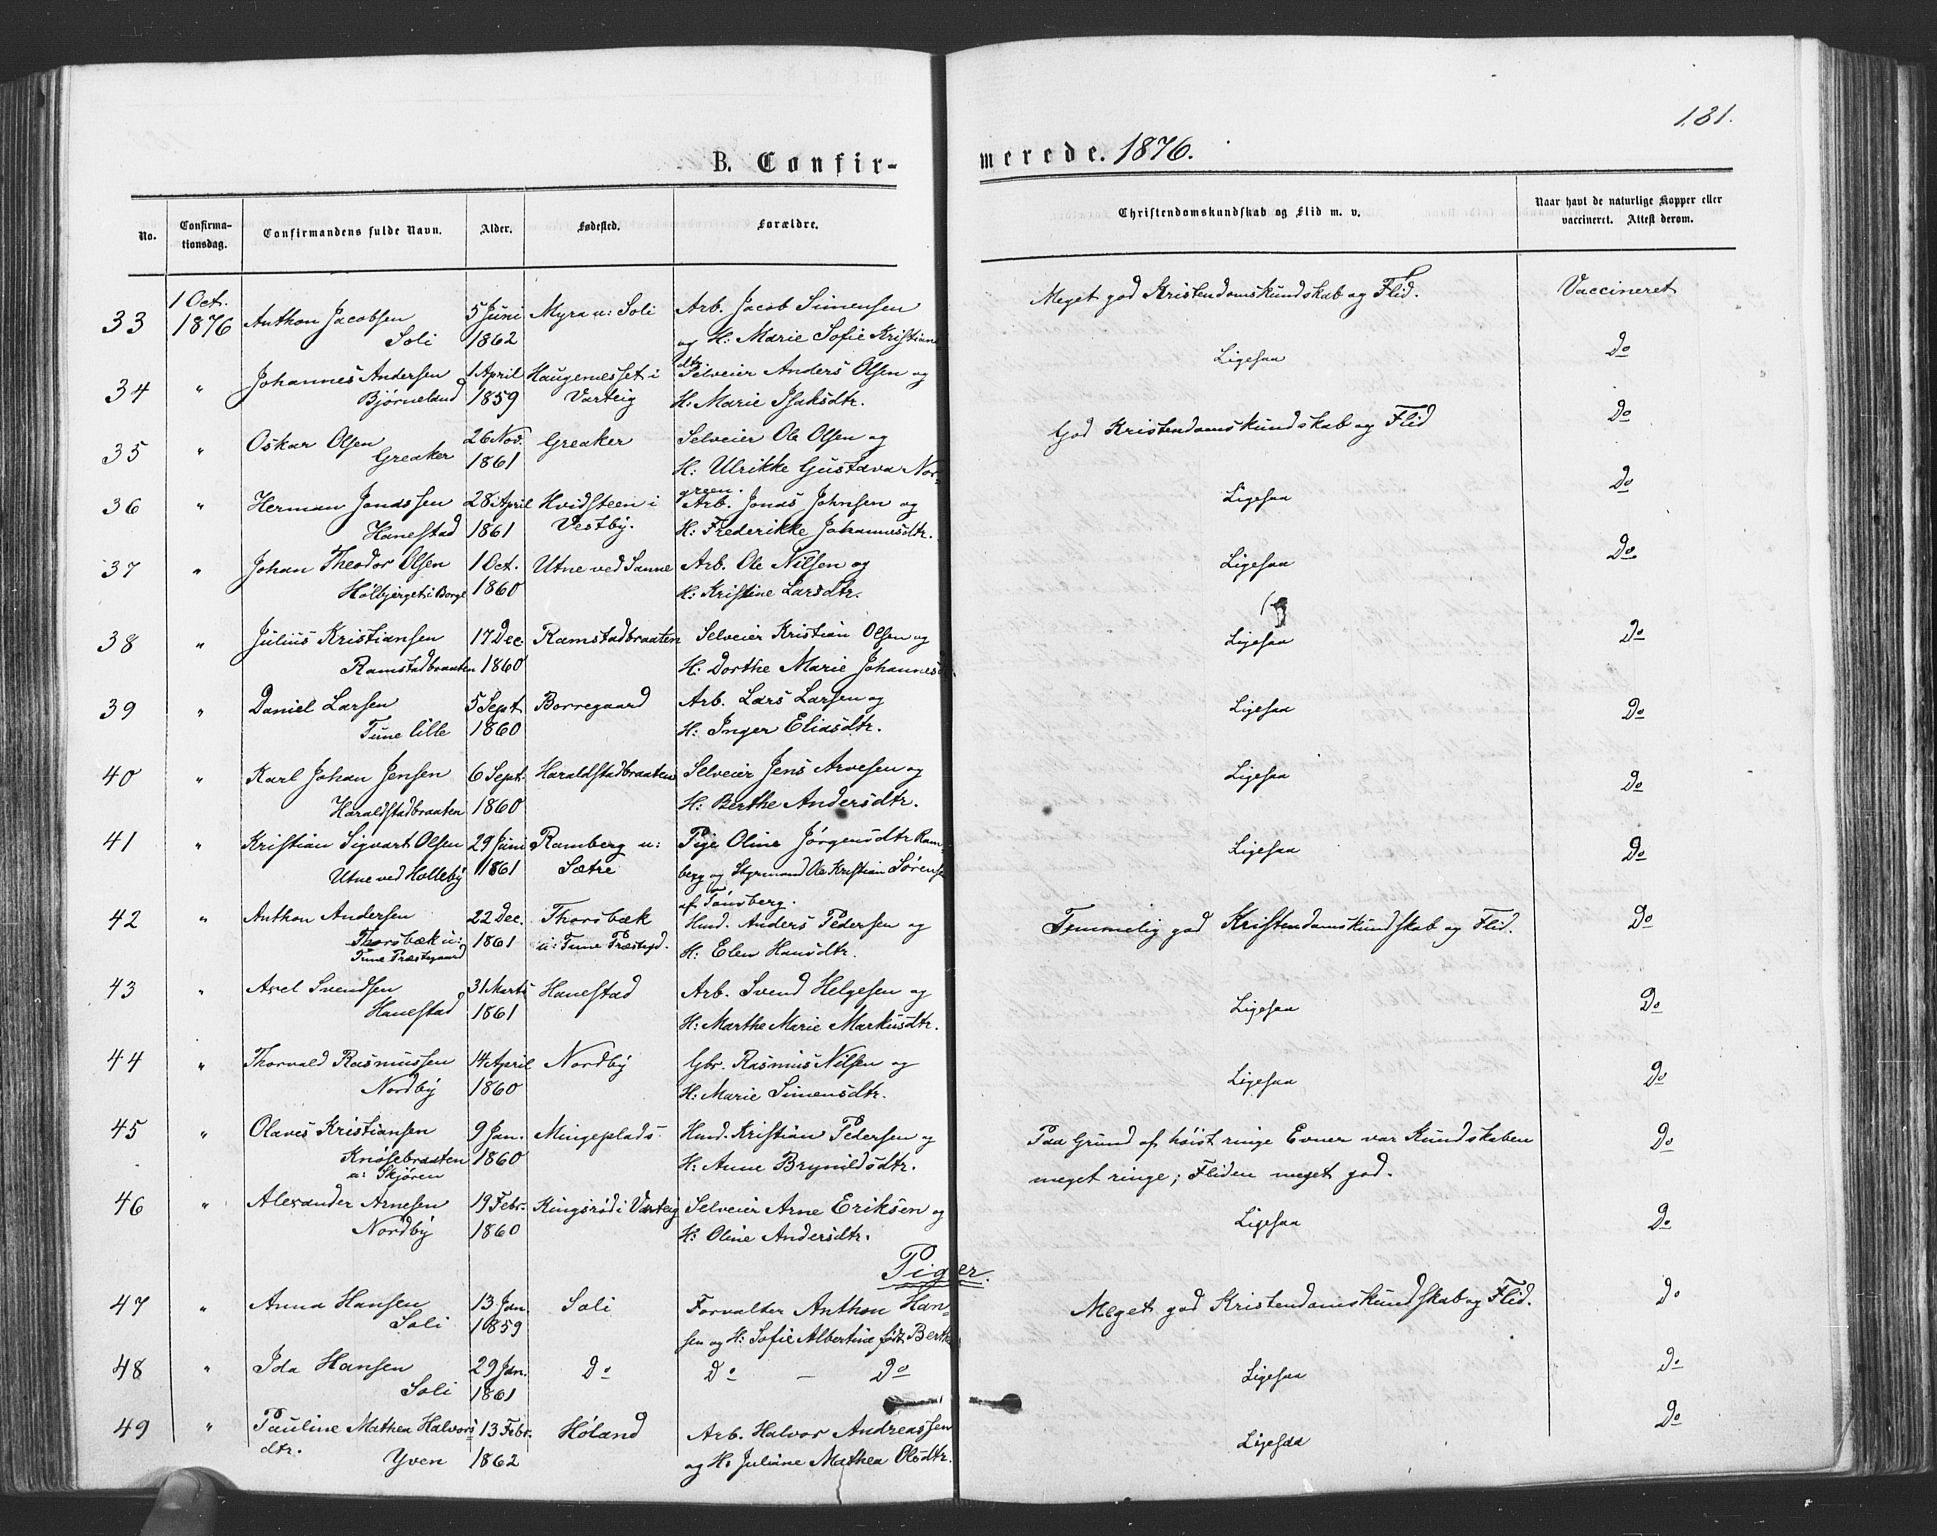 131.
B. Confirmerede. 1876.
No.
Confirmationsdag.
Confirmandens fulde Navn.
Alder.
Fødested.
Forældre.
Christendomskundskab og Flid m. v.
Naar havt de naturlige Kopper eller vaccineret. Attest derom.
33 1 Oct. 1876 Anthon Jacobsen 5 Juni Myra u: Soli Arb. Jacob Simensen Meget god Kristendomskundskab og Flid. Vaccineret
Soli 1862 og H: Marie Sofie Kristians
dtr.
34 " Johannes Andersen 1 April Haugenesset i Selveier Anders Olsen og Ligesaa Do
Bjørneland 1859 Varteig H: Marie Isaksdtr.
35 " Oskar Olsen 26 Nov. Greaker Selveier Ole Olsen og God Kristendomskundskab og Flid Do
Greaker 1861 H: Ulrikke Gustava Nor-
green.
36 " Herman Jonassen 28 April Hvidsteen i Arb. Jonas Johnsen og Ligesaa Do
Hanestad 1861 Vestby. H: Frederikke Johannesdtr.
37 " Johan Theodor Olsen 1 Oct. Utne ved Sanne Arb. Ole Nilsen og Ligesaa Do
Holbjerget i Borge 1860 H: Kristine Larsdtr.
38 " Julius Kristiansen 17 Dec. Ramstadbraaten Selveier Kristian Olsen og Ligesaa Do
Ramstadbraaten 1860 H: Dorthe Marie Johannesd
39 " Daniel Larsen 5 Sept. Borregaard Arb. Lars Larsen og Ligesaa Do
Tune lille 1860 H: Inger Eliasdtr.
40 " Karl Johan Jensen 6 Sept. Haraldstadbraaten Selveier Jens Arvesen og Ligesaa Do
Haraldstadbraaten 1860 H: Berthe Andersdtr.
41 " Kristian Sigvart Olsen 29 Juni Ramberg u: Pige Oline Jørgensdtr Ram- Ligesaa Do
Utne ved Holleby 1861 Sætre berg og Styrmand Ole Kristian Sørensen
af Tønsberg.
42 " Anthon Andersen 22 Dec. Thorsbæk Husmd. Anders Pedersen og Temmelig god Kristendomskundskab og Flid. Do
Thorsbæk u: 1861 u: Tune Præstegd. H: Elen Hansdtr.
Tune Præstegaard
43 " Axel Svendsen 31 Marts Hanestad Arb. Svend Helgesen og Ligesaa Do
Hanestad 1861 H: Marthe Marie Markusdtr.
44 " Thorvald Rasmussen 14 April Nordby Gbr. Rasmus Nilsen og Ligesaa Do
Nordby 1860 H: Marie Simensdtr.
45 " Olaves Kristiansen 9 Jan. Mingeplads. Husmd. Kristian Pedersen og Paa Grund af høist ringe Evner var Kundskaben Do
Knøsebraaten 1860 H: Anne Brynildsdtr. meget ringe; Fliden meget god.
u: Skjøren
46 " Alexander Arnesen 19 Febr. Kingsrød i Varteig Selveier Arne Eriksen og Ligesaa Do
Nordby 1860 H: Oline Andersdtr.
Piger.
47 " Anna Hansen 13 Jan. Soli Forvalter Anthon Han- Meget god Kristendomskundskab og Flid. Do
Soli 1859 sen og H: Sofie Albertine født
48 " Ida Hansen 29 Jan. Do Do — Do Ligesaa Do
Soli 1861
49 " Pauline Mathea Halvors 13 Febr. Høland Arb. Halvor Andreassen Ligesaa Do
dtr. Yven 1862 og H: Juliane Mathea Olsdtr.